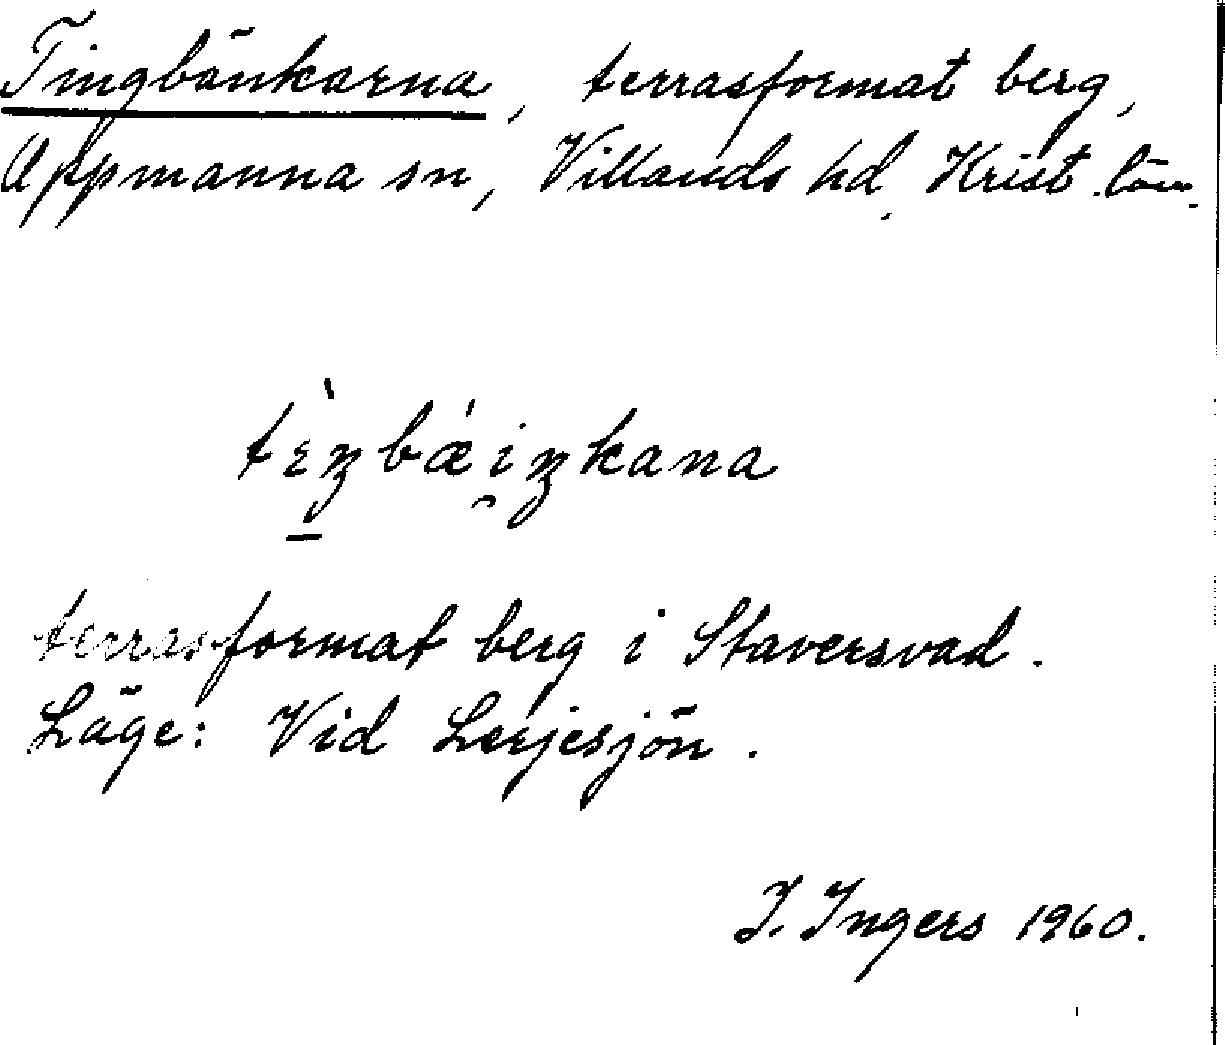 Tingbänkarna, terrasformat berg,
Oppmanna sn, Villands hd, Krist. län.
tɛ̀ŋbǽi̯ŋkana
terrasformat berg i Staversvad.
Läge: Vid Lerjesjön.
I. Ingers 1960.